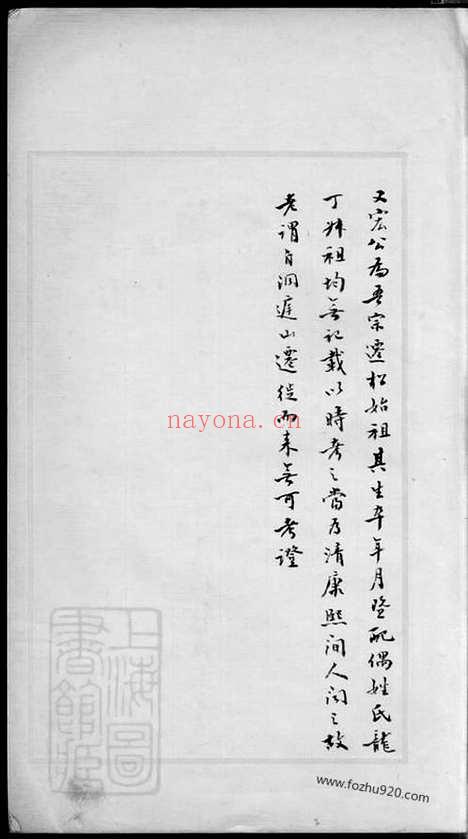 又宏公為吾宗遷松始祖其生卒年月暨配偶姓氏龍
丁艸祖均無記載以時考之當为清康熙间人闻之故
老謂自洞庭山遷徙而来無可考證
nayona.cn
上海圖
書館藏
www.fozhu920.com